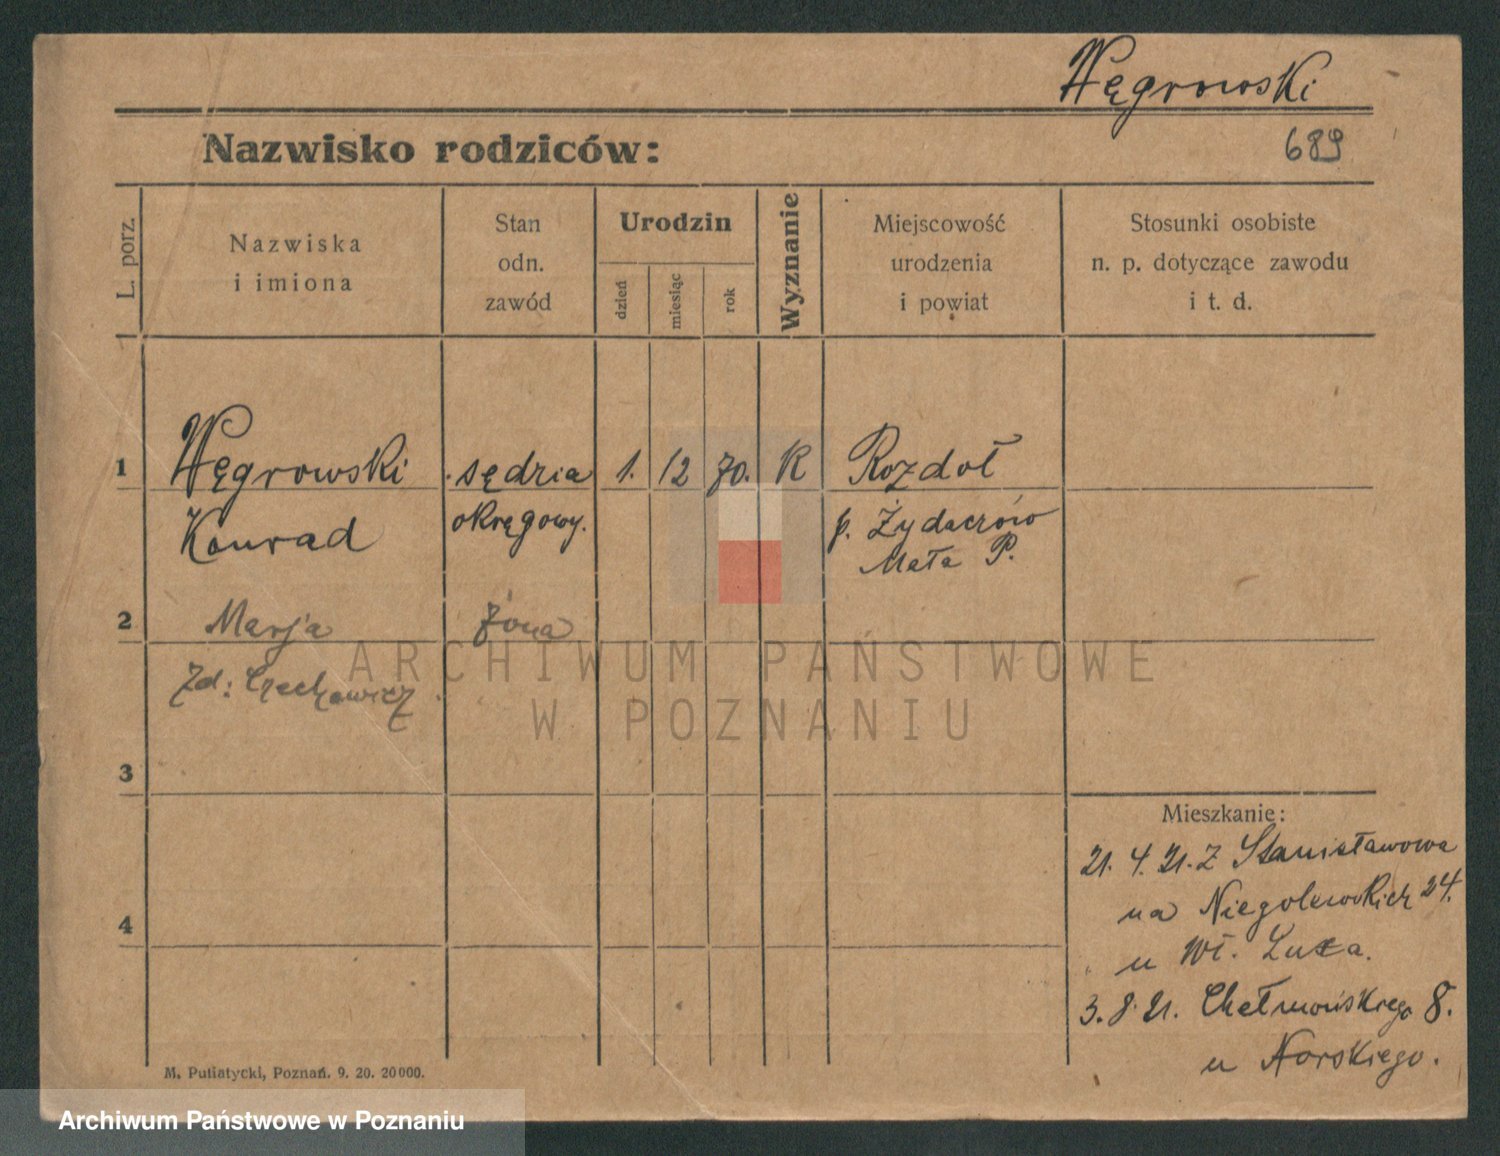 Węgrowski
Nazwisko rodziców:
689
L. porz.
Nazwiska
i imiona
Stan
odn.
zawód
Urodzin
dzień
miesiąc
rok
Wyznanie
Miejscowość
urodzenia
i powiat
Stosunki osobiste
n. p. dotyczące zawodu
i t. d.
1 Węgrowski sędzia 1. 12 70. K Rozdoł
Konrad okręgowy. p. Żydaczów
Mała P.
2 Marja żona
Zd: Czechowicz.
ARCHIWUM PAŃSTWOWE
W POZNANIU
3
Mieszkanie:
21. 4. 21. Z Stanisławowa
na Niegolewskich 24.
4
u Wł. Luxa.
3. 8. 21. Chełmońskiego 8.
u Norskiego.
M. Putiatycki, Poznań. 9. 20. 20000.
Archiwum Państwowe w Poznaniu